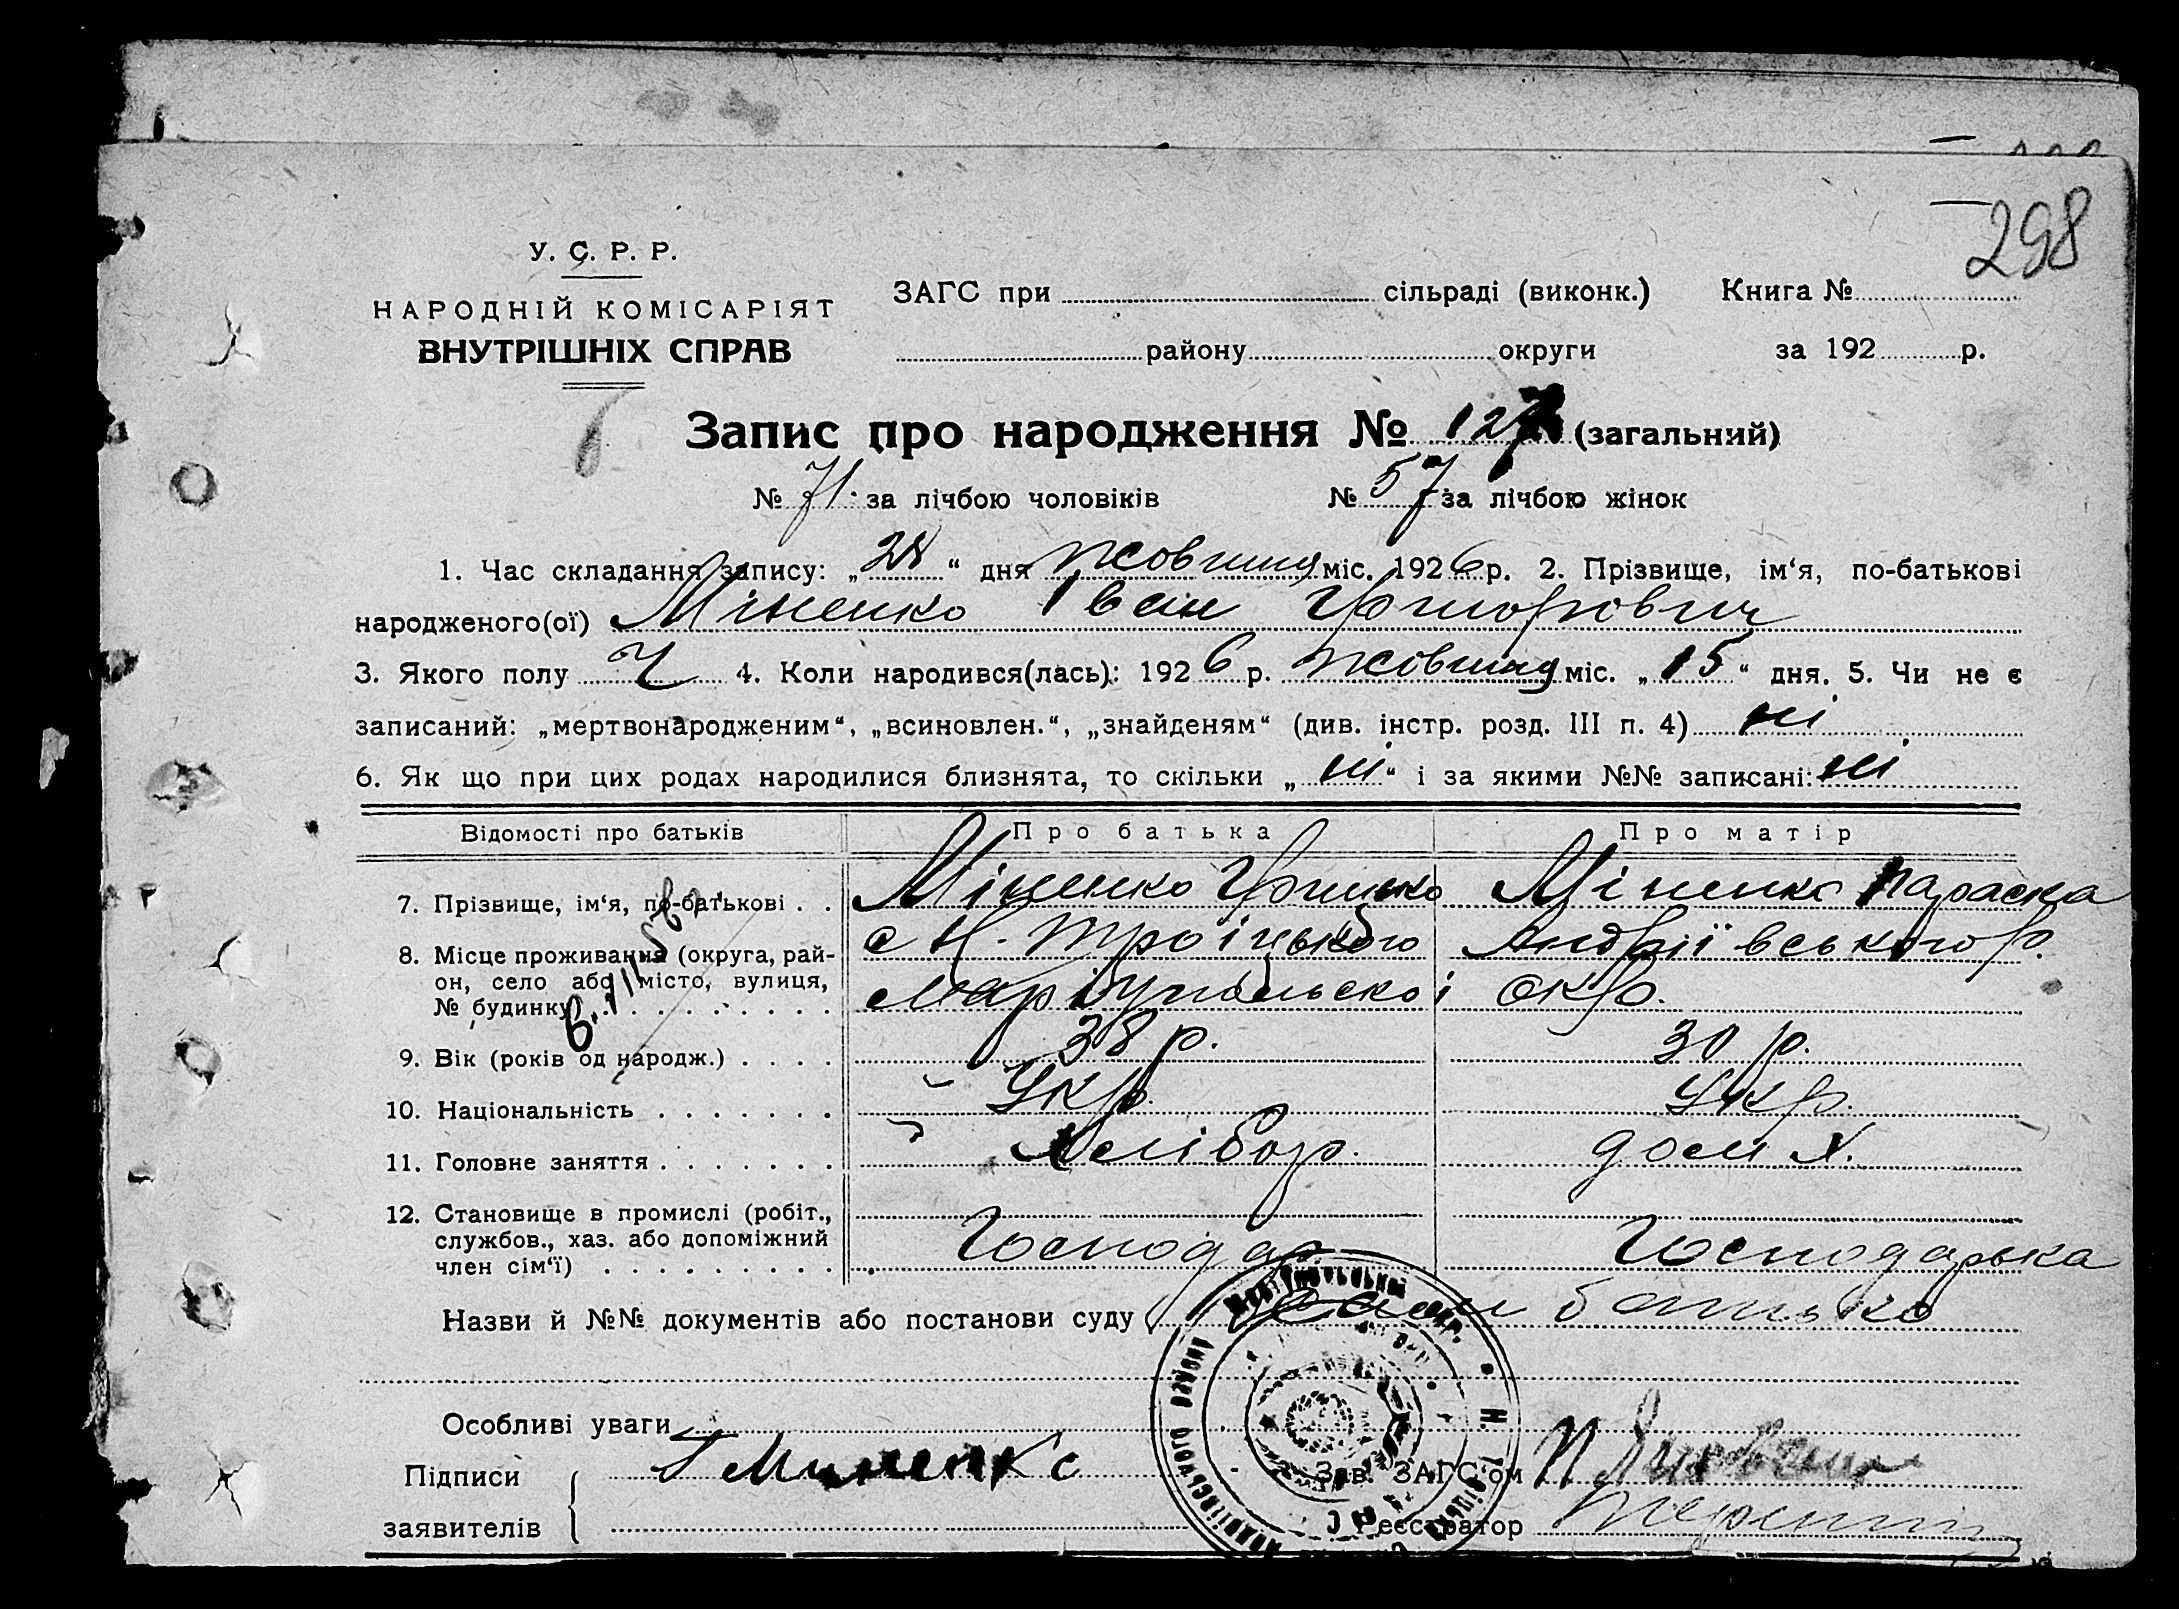 298
У. С. Р. Р.
НАРОДНІЙ КОМІСАРІЯТ
ВНУТРІШНІХ СПРАВ
ЗАГС при сільраді (виконк.) Книга №
району округи за 192 р.
Запис про народження № 127 (загальний)
№ 71 за лічбою чоловіків № 57 за лічбою жінок
1. Час складання запису: „28“ дня жовтня міс. 1926 р. 2. Прізвище, ім‘я, по-батькові
народженого(ої) Міненко Іван Григорович
3. Якого полу Ч 4. Коли народився(лась): 1926 р. жовтня міс. „15“ дня. 5. Чи не є
записаний: „мертвонародженим“, „всиновлен.“, „знайденям“ (див. інстр. розд. III п. 4) ні
6. Як що при цих родах народилися близнята, то скільки „ні“ і за якими №№ записані: ні
Відомості про батьків Про батька Про матір
7. Прізвище, ім‘я, по-батькові . . Міненко Грицько Міненко Параска
8. Місце проживання (округа, рай- с Н. Троїцького Андріївського р.
он, село або місто, вулиця, Маріупільскої окр.
№ будинку) . . . . . . . . .
9. Вік (років од народж.) . . . . 38 р. 30 р.
10. Національність . . . . . . . Укр. Укр.
11. Головне заняття . . . . . . . Хлібор. дом х.
12. Становище в промислі (робіт., Господар Господарька
службов., хаз. або допоміжний
член сім‘ї) . . . . . . . . .
Назви й №№ документів або постанови суду Сам батько
Особливі уваги
Підписи Г Миненко Зав. ЗАГС‘ом
заявителів Реєстратор